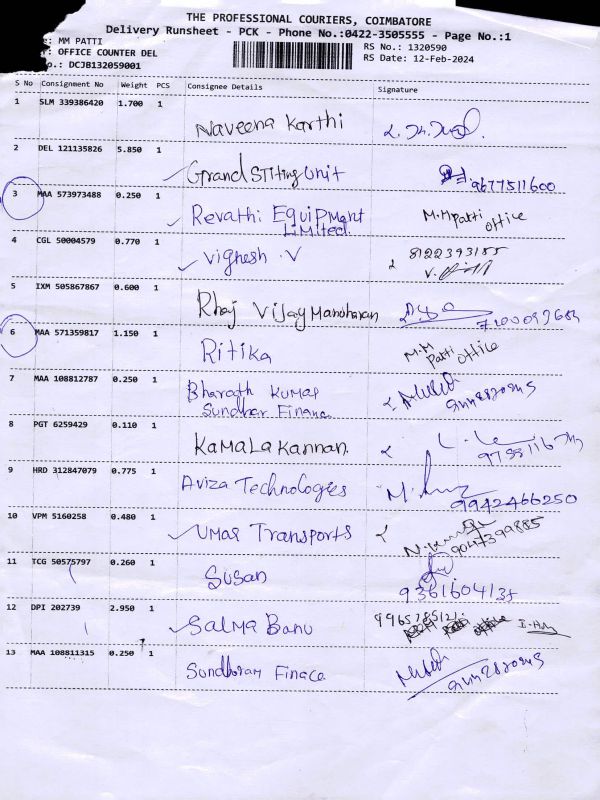 THE PROFESSIONAL COURIERS, COIMBATORE
Delivery Runsheet - PCK - Phone No.:0422-3505555 - Page No.:1
MM PATTI RS No.: 1320590
OFFICE COUNTER DEL RS Date: 12-Feb-2024
o.: DCJB132059001
S No Consignment No Weight PCS Consignee Details Signature
1 SLM 339386420 1.700 1
Naveena Karthi
2 DEL 121135826 5.850 1
Grand STiTing Unit 9677511600
3 MAA 573973488 0.250 1
Revathi Equipment M.M patti office
Limited.
4 CGL 50004579 0.770 1
Vignesh .V 8122393185
5 IXM 505867867 0.600 1
Rhaj Vijay Manoharan
6 MAA 571359817 1.150 1
Ritika M.M Patti office
7 MAA 108812787 0.250 1
Bharath Kumar
Sundhar Finance
8 PGT 6259429 0.110 1
Kamala Kannan.
9 HRD 312847079 0.775 1
Aviza Technologies 9942466250
10 VPM 5160258 0.480 1
Umar Transports 9047399885
11 TCG 50575797 0.260 1
Susan
12 DPI 202739 2.950 1
Salma Banu
13 MAA 108811315 0.250 1
Sundharam Finace